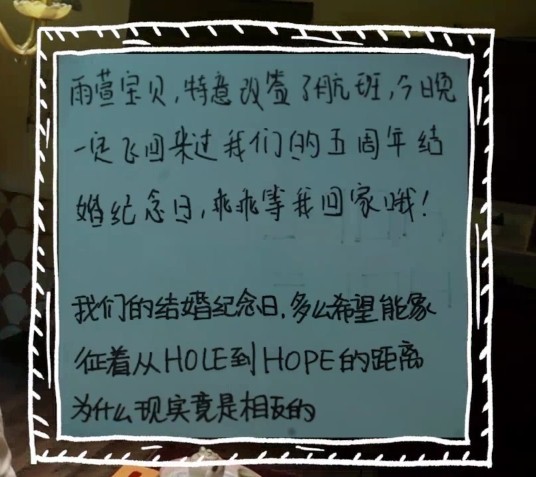 雨萱宝贝,特意改签了航班,今晚
一定飞回来过我们的五周年结
婚纪念日,乖乖等我回家哦!
我们的结婚纪念日,多么希望能象
征着从HOLE到HOPE的距离
为什么现实竟是相反的